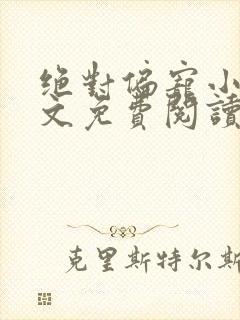 绝對偏寵小
文免費閱讀
克里斯特尔斯